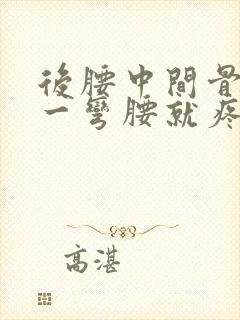 後腰中間骨
一彎腰就疼
高湛